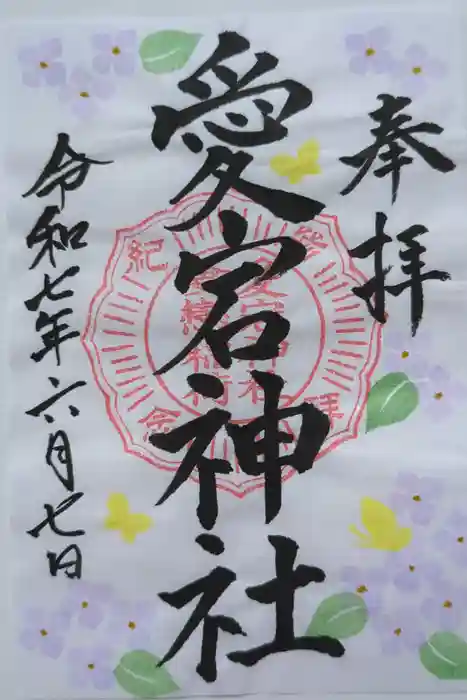 奉拝
愛宕神社
令和七年六月七日